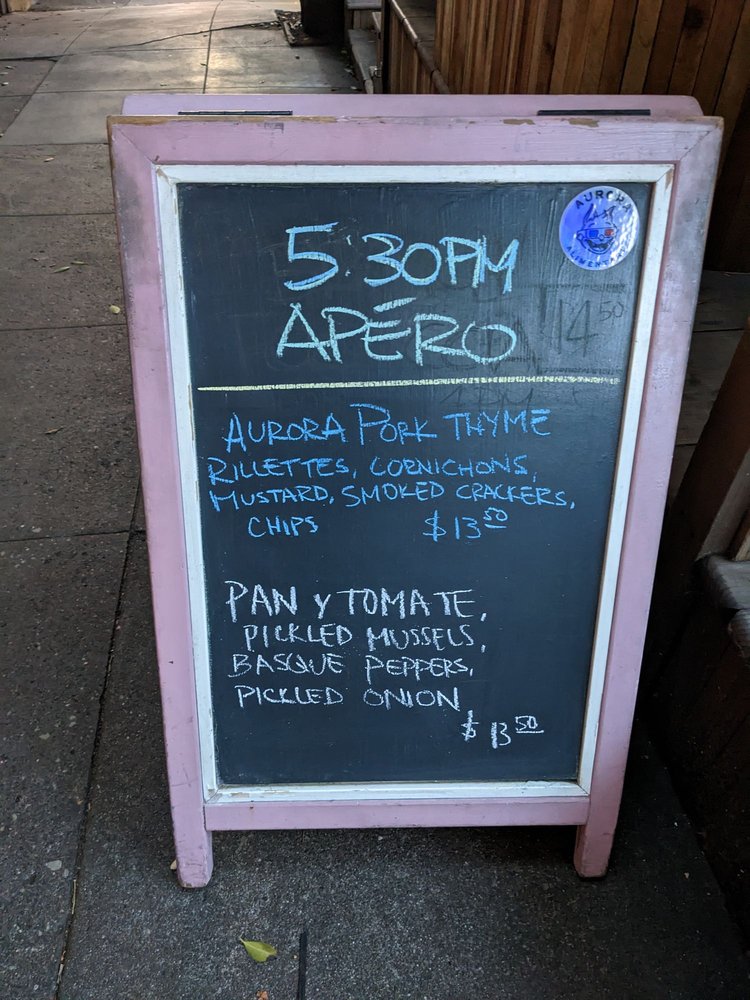 5:30PM
APÉRO
AURORA
ALIMENTARI
14 50
AURORA PORK THYME
RILLETTES, CORNICHONS,
MUSTARD, SMOKED CRACKERS,
CHIPS $13 50
PAN y TOMATE,
PICKLED MUSSELS,
BASQUE PEPPERS,
PICKLED ONION
$13 50